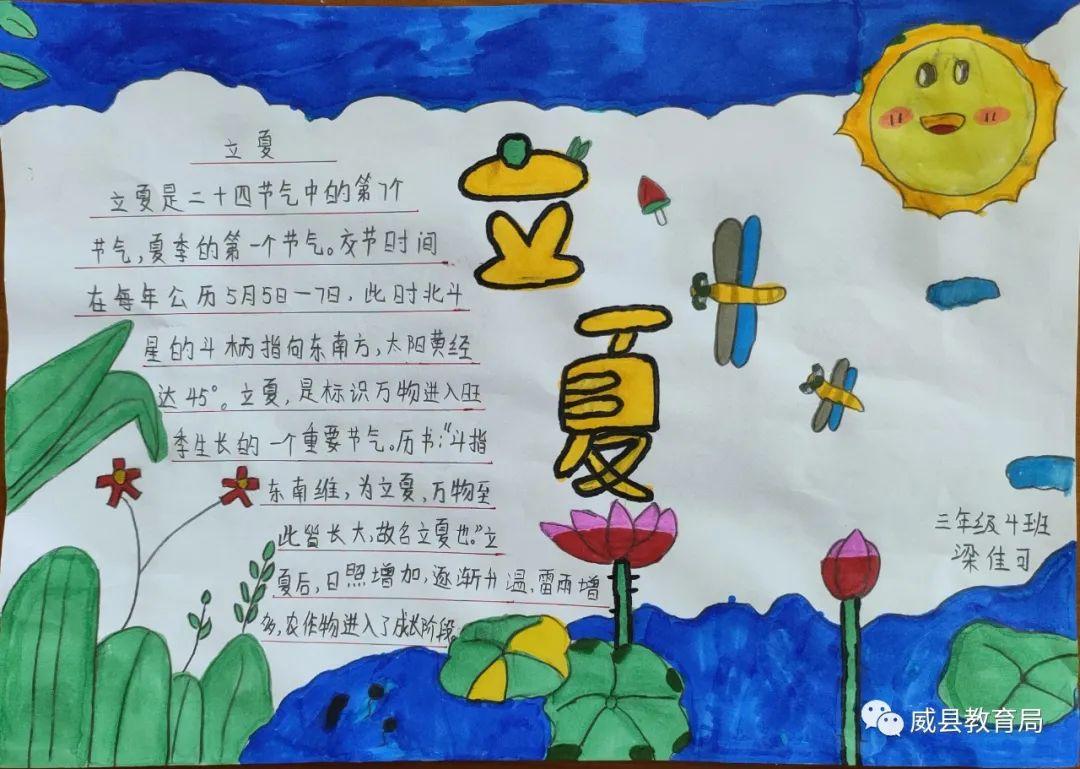 立夏
立夏是二十四节气中的第7个
节气，夏季的第一个节气。交节时间
在每年公历5月5日一7日，此时北斗
星的斗柄指向东南方，太阳黄经
达45°。立夏，是标识万物进入旺
季生长的一个重要节气。历书："斗指
东南维，为立夏，万物至
此皆长大，故名立夏也。"立
夏后，日照增加，逐渐升温，雷雨增
多，农作物进入了成长阶段。
立
夏
三年级4班
梁佳习
威县教育局